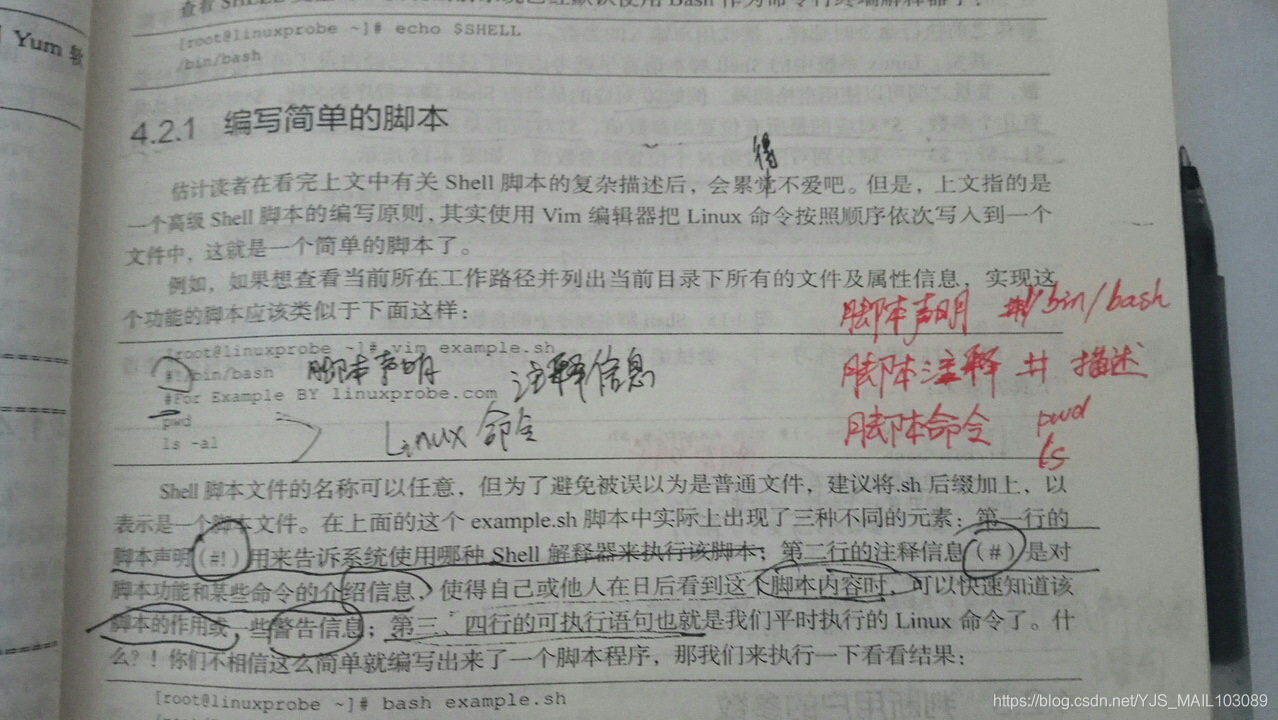 Yum 软
[root@linuxprobe ~]# echo $SHELL
/bin/bash
4.2.1 编写简单的脚本
得
估计读者在看完上文中有关 Shell 脚本的复杂描述后，会累觉不爱吧。但是，上文指的是
一个高级 Shell 脚本的编写原则，其实使用 Vim 编辑器把 Linux 命令按照顺序依次写入到一个
文件中，这就是一个简单的脚本了。
例如，如果想查看当前所在工作路径并列出当前目录下所有的文件及属性信息，实现这
个功能的脚本应该类似于下面这样：
脚本声明 #!/bin/bash
[root@linuxprobe ~]# vim example.sh
#!/bin/bash 脚本声明 注释信息
脚本注释 # 描述
#For Example BY linuxprobe.com
pwd
ls -al
Linux 命令
脚本命令 pwd
ls
Shell 脚本文件的名称可以任意，但为了避免被误以为是普通文件，建议将.sh 后缀加上，以
表示是一个脚本文件。在上面的这个 example.sh 脚本中实际上出现了三种不同的元素：第一行的
脚本声明（#!）用来告诉系统使用哪种 Shell 解释器来执行该脚本；第二行的注释信息（#）是对
脚本功能和某些命令的介绍信息，使得自己或他人在日后看到这个脚本内容时，可以快速知道该
脚本的作用或一些警告信息；第三、四行的可执行语句也就是我们平时执行的 Linux 命令了。什
么？！你们不相信这么简单就编写出来了一个脚本程序，那我们来执行一下看看结果：
[root@linuxprobe ~]# bash example.sh
https://blog.csdn.net/YJS_MAIL103089